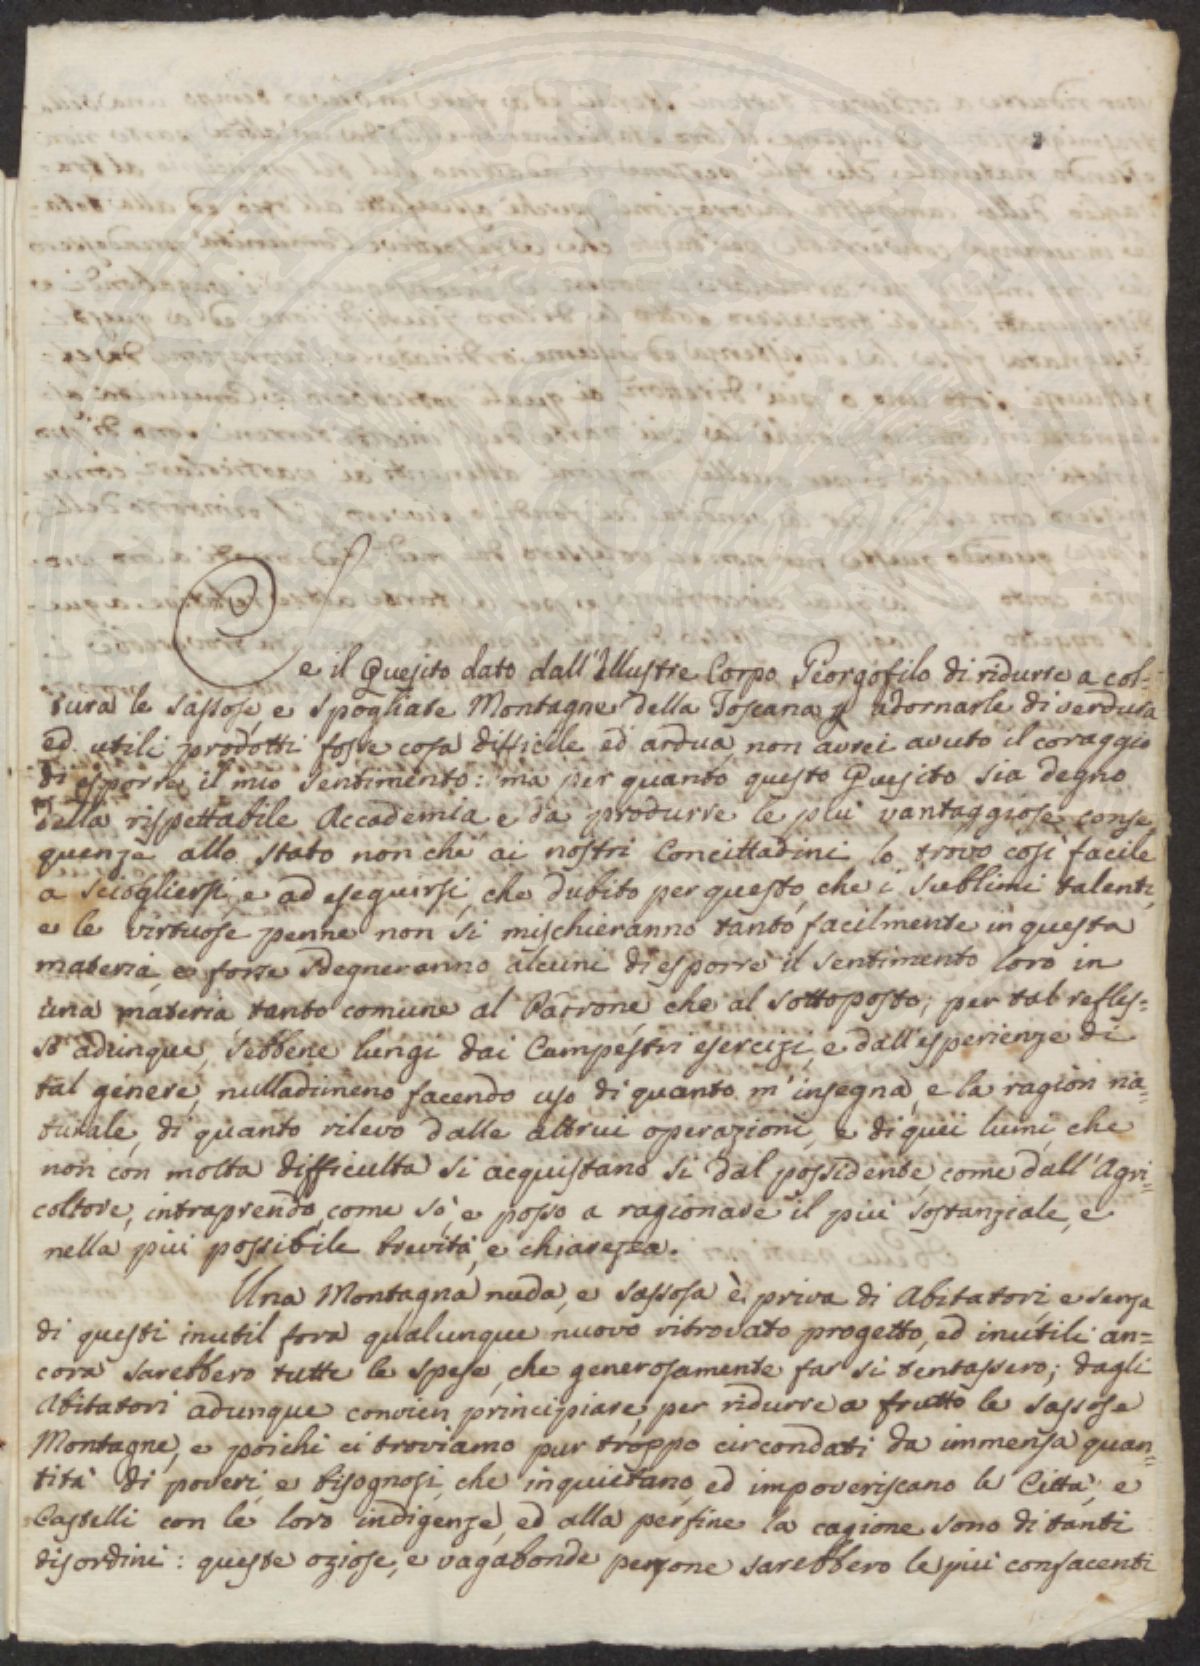 Se il Quesito dato dall'Illustre Corpo Georgofilo di ridurre a col-
tura le sassose, e spogliate Montagne della Toscana p adornarle di verdura
ed utili prodotti fosse cosa difficile ed ardua, non avrei avuto il coraggio
di esporre il mio sentimento: ma per quanto questo Quesito sia degno
della rispettabile Accademia e da produrre le più vantaggiose conse
quenze allo stato non che ai nostri Concittadini lo trovo così facile
a sciogliersi, e ad eseguirsi, che dubito per questo, che i sublimi talenti,
e le virtuose penne non si mischieranno tanto facilmente in questa
materia, e forse sdegneranno alcuni di esporre il sentimento loro in
una materia tanto comune al Padrone che al sottoposto; per tal refles=
so adunque, sebbene lungi dai Campestri esercizi, e dall'esperienze di
tal genere, nulladimeno facendo uso di quanto m'insegna, e la ragion na=
turale, di quanto rilevo dalle altrui operazioni, e di quei lumi, che
non con molta difficultà si acquistano si dal possidente, come dall'Agri=
coltore, intraprendo, come sò, e posso a ragionare il più sostanziale, e
nella più possibile brevità, e chiarezza.
Una Montagna nuda, e sassosa è priva di Abitatori, e senza
di questi inutil fora qualunque nuovo ritrovato progetto, ed inutili an=
cora sarebbero tutte le spese, che generosamente far si tentassero; dagli
Abitatori adunque convien principiare, per ridurre a frutto le sassose
Montagne, e poichè ci troviamo pur troppo circondati da immensa quan=
tità di poveri, e bisognosi, che inquietano, ed impoveriscano le Città, e
Castelli con le loro indigenze, ed alla perfine la cagione sono di tanti
disordini: queste oziose, e vagabonde persone sarebbero le più confacenti